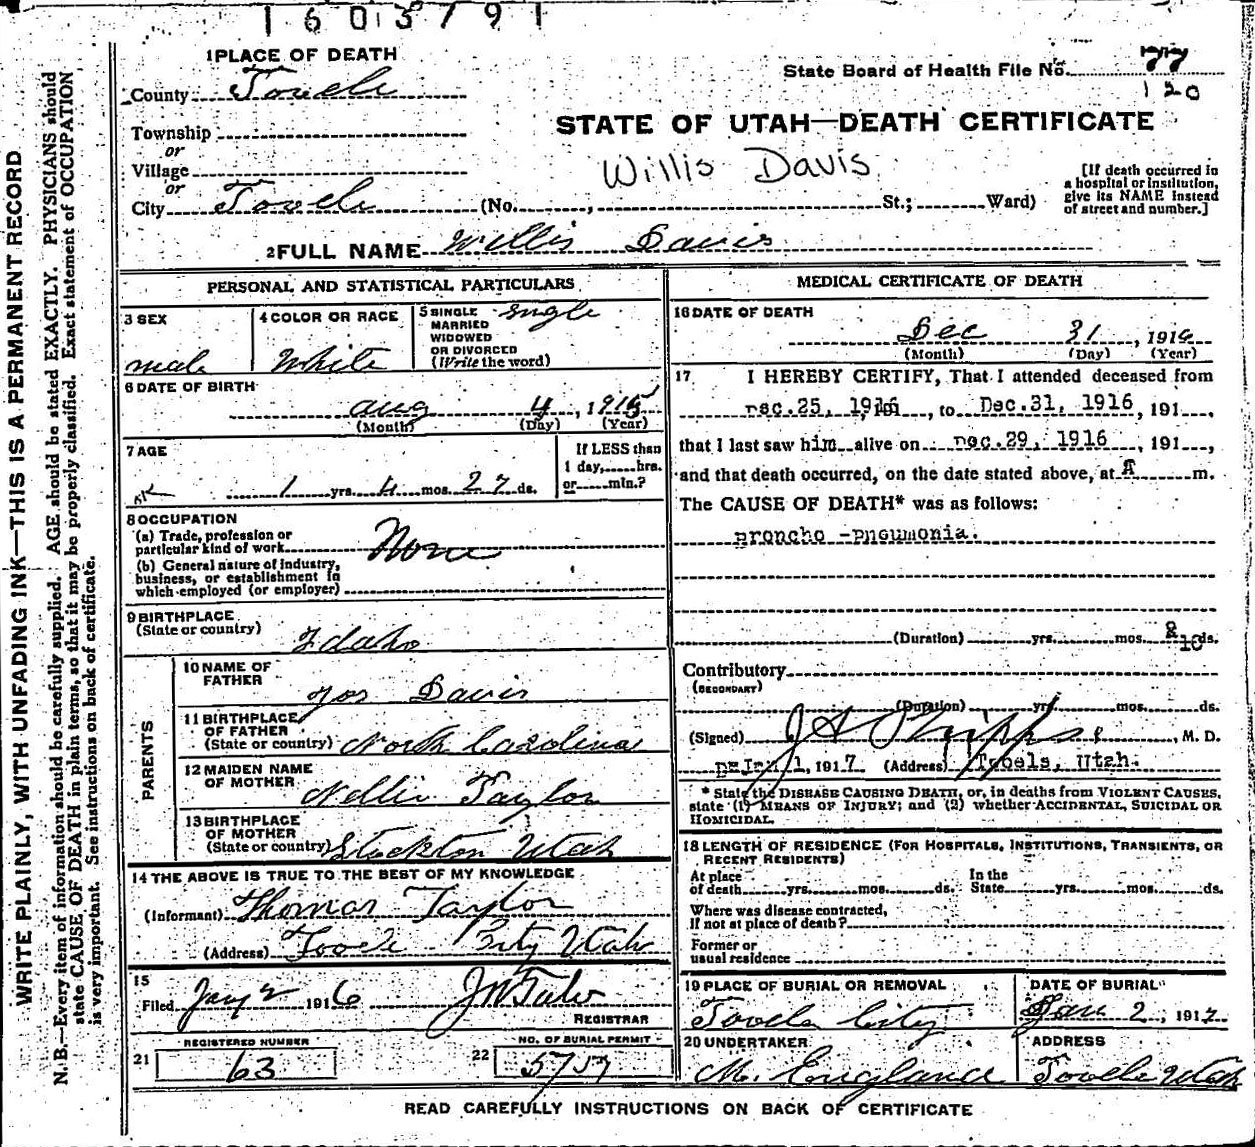 1603791
1 PLACE OF DEATH
State Board of Health File No. 77
120
County Tooele
STATE OF UTAH—DEATH CERTIFICATE
Township
or
Village
Willis Davis
or
City Tooele (No. , St.; Ward)
[If death occurred in
a hospital or institution,
give its NAME instead
of street and number.]
2 FULL NAME Willis Davis
PERSONAL AND STATISTICAL PARTICULARS
3 SEX
male
4 COLOR OR RACE
White
5 SINGLE
MARRIED
WIDOWED
OR DIVORCED
(Write the word)
Single
6 DATE OF BIRTH
Aug 4, 1915
(Month) (Day) (Year)
7 AGE
1 yrs. 4 mos. 27 ds.
If LESS than
1 day, hrs.
or min.?
8 OCCUPATION
(a) Trade, profession or
particular kind of work None
(b) General nature of industry,
business, or establishment in
which employed (or employer)
9 BIRTHPLACE
(State or country)
Idaho
PARENTS
10 NAME OF
FATHER
Jos Davis
11 BIRTHPLACE
OF FATHER
(State or country) North Carolina
12 MAIDEN NAME
OF MOTHER
Nellie Taylor
13 BIRTHPLACE
OF MOTHER
(State or country) Stockton Utah
14 THE ABOVE IS TRUE TO THE BEST OF MY KNOWLEDGE
(Informant) Thomas Taylor
(Address) Tooele City Utah
15
Filed Jany 2 1916
REGISTRAR
21 REGISTERED NUMBER
63
22 NO. OF BURIAL PERMIT
5757
MEDICAL CERTIFICATE OF DEATH
16 DATE OF DEATH
Dec 31, 1916
(Month) (Day) (Year)
17 I HEREBY CERTIFY, That I attended deceased from
Dec.25, 1916, to Dec.31, 1916, 191
that I last saw him alive on Dec.29, 1916, 191
and that death occurred, on the date stated above, at A m.
The CAUSE OF DEATH* was as follows:
Broncho -Pneumonia.
(Duration) yrs. mos. 10 ds.
Contributory
(SECONDARY)
(Duration) yrs. mos. ds.
(Signed) J A Phipps, M. D.
Jan 1, 1917 (Address) Tooele, Utah.
* State the DISEASE CAUSING DEATH, or, in deaths from VIOLENT CAUSES,
state (1) MEANS OF INJURY; and (2) whether ACCIDENTAL, SUICIDAL OR
HOMICIDAL.
18 LENGTH OF RESIDENCE (FOR HOSPITALS, INSTITUTIONS, TRANSIENTS, OR
RECENT RESIDENTS)
At place
of death yrs. mos. ds.
In the
State yrs. mos. ds.
Where was disease contracted,
If not at place of death?
Former or
usual residence
19 PLACE OF BURIAL OR REMOVAL
Tooele City
DATE OF BURIAL
Jan 2, 1917
20 UNDERTAKER
M. England
ADDRESS
Tooele Utah
READ CAREFULLY INSTRUCTIONS ON BACK OF CERTIFICATE
WRITE PLAINLY, WITH UNFADING INK—THIS IS A PERMANENT RECORD
N. B.—Every item of information should be carefully supplied. AGE should be stated EXACTLY. PHYSICIANS should
state CAUSE OF DEATH in plain terms, so that it may be properly classified. Exact statement of OCCUPATION
is very important. See instructions on back of certificate.